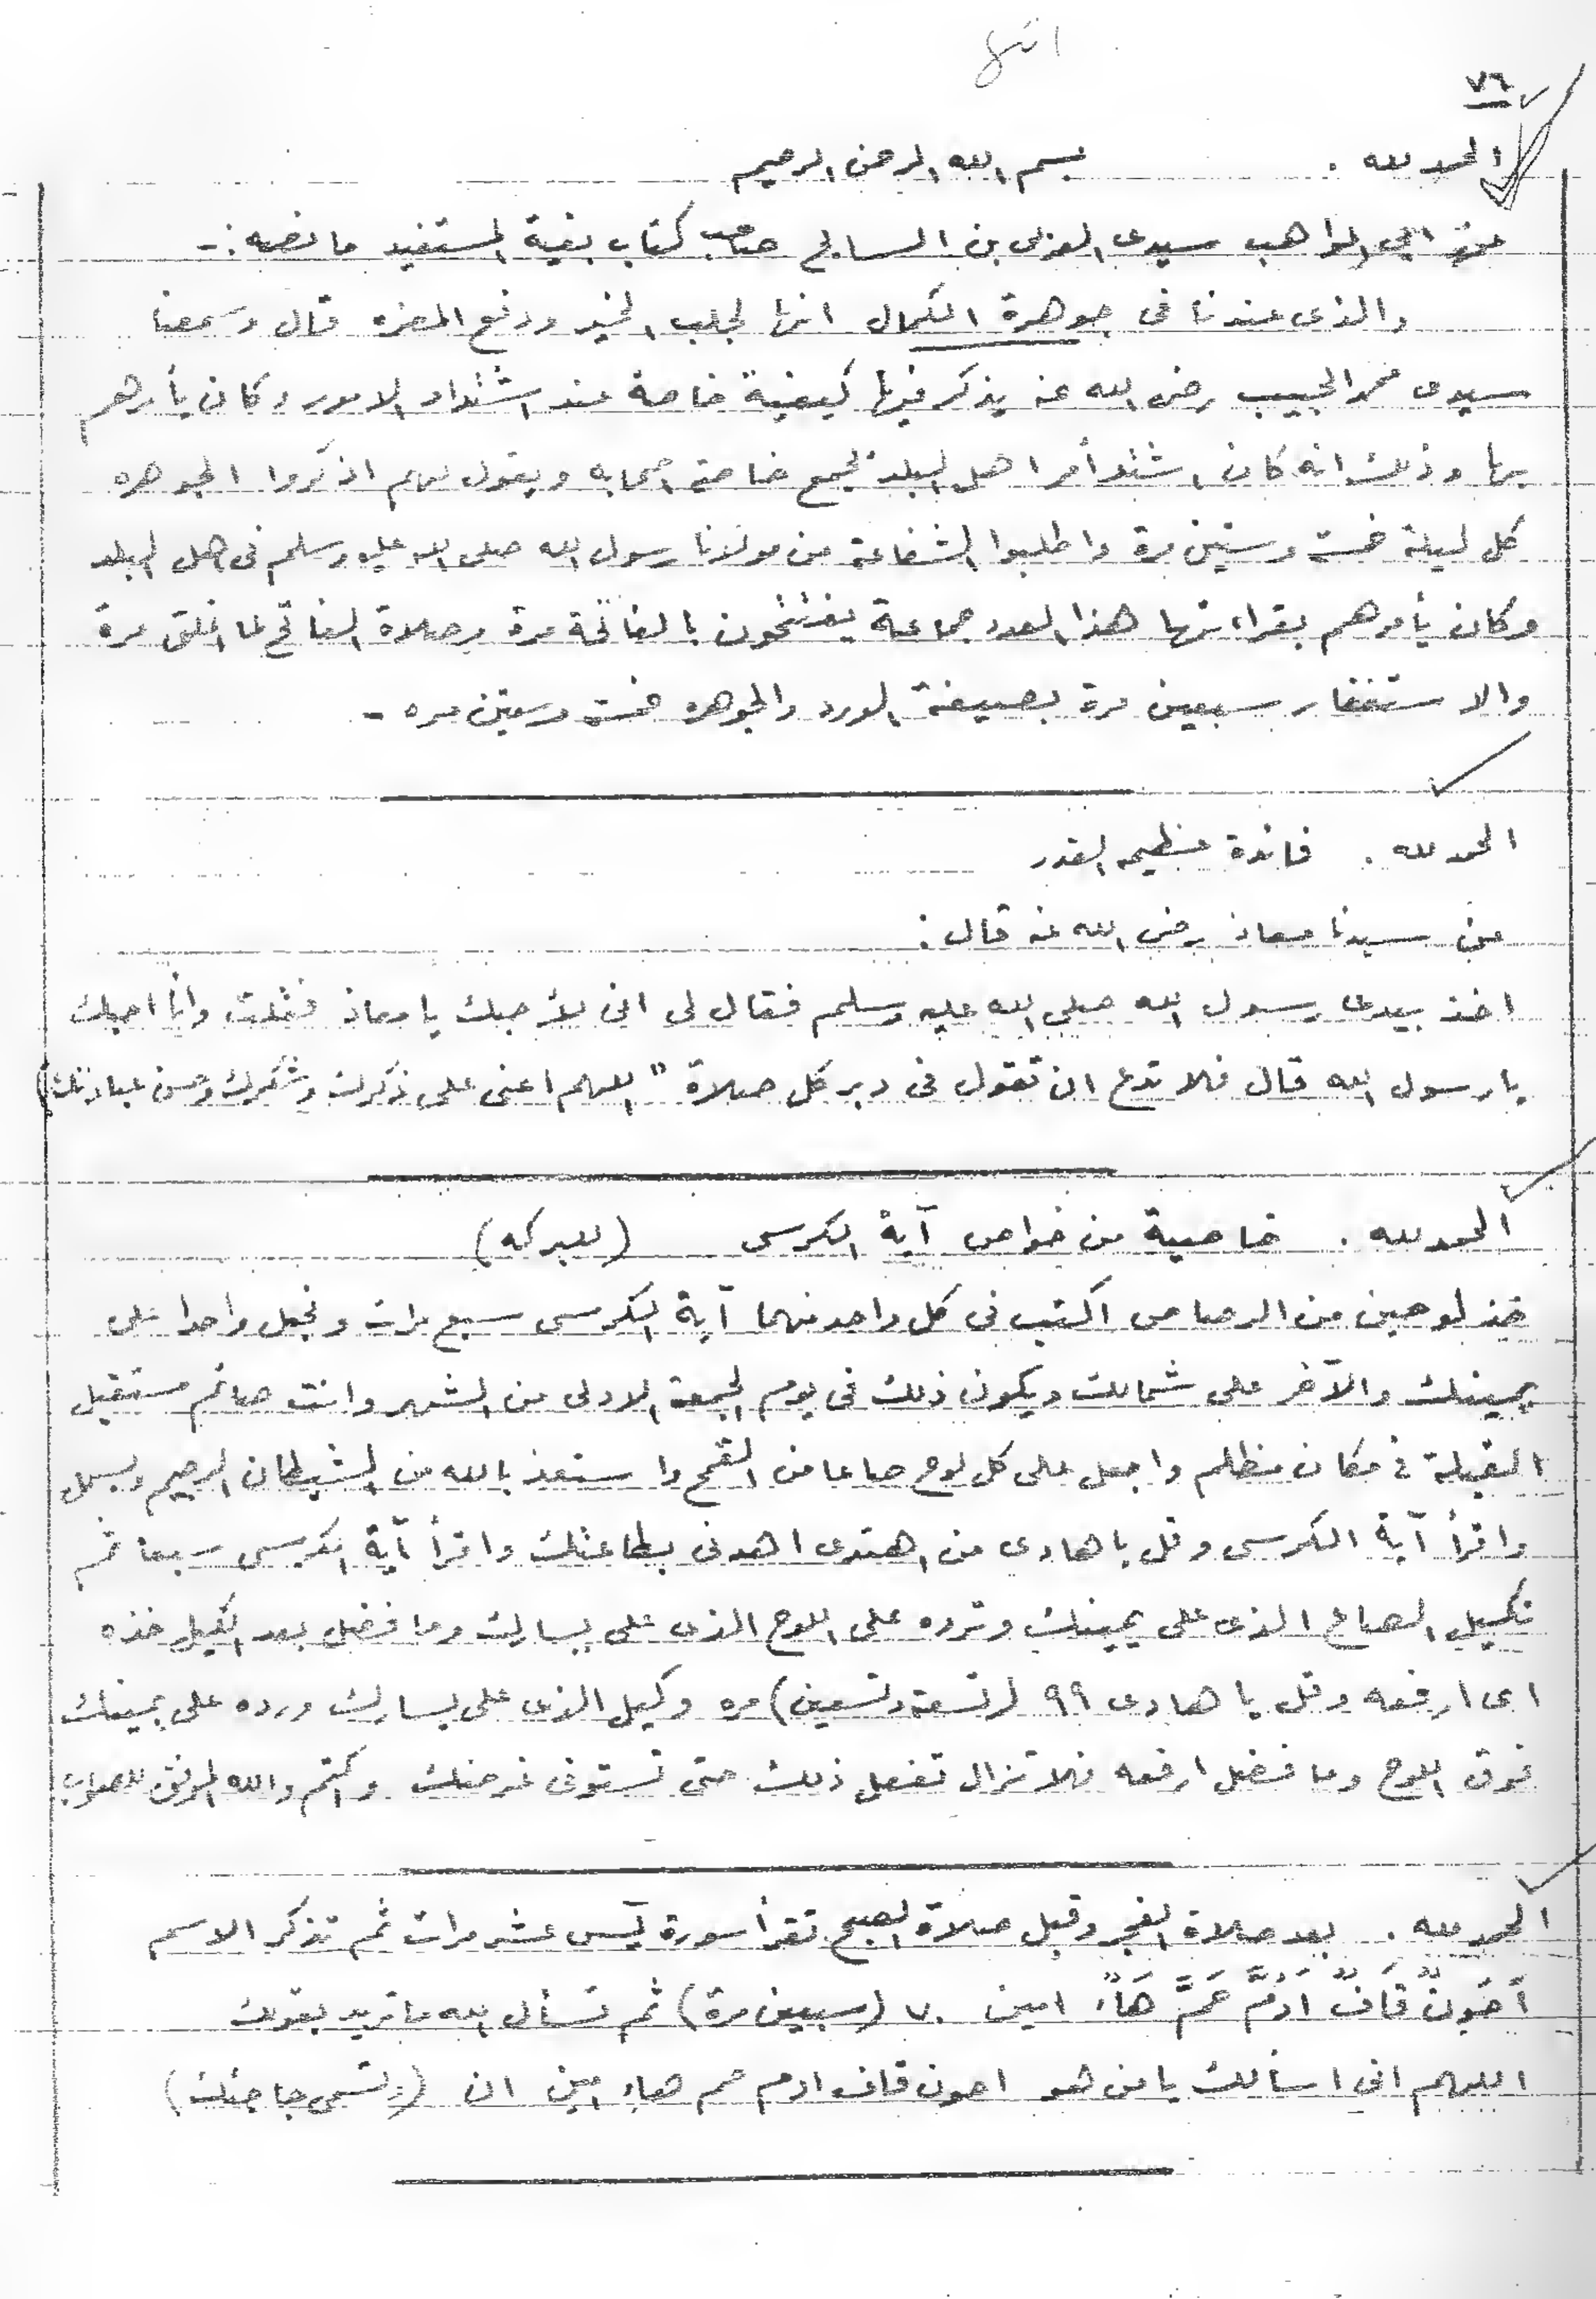 انتهى
٧٦
الحمد لله . بسم الله الرحمن الرحيم
عن ابي المواهب سيدى العربى بن السائح صاحب كتاب بغية المستفيد ما نصه :-
والذى عندنا فى جوهرة الكمال انها لجلب الخير ودفع المضره قال وسمعنا
سيدى محمد الحبيب رضى الله عنه يذكر فيها كيفية خاصة عند اشتداد الامور وكان يأمرهم
بها وذلك انه كان اشتد أمر اهل البلد فجمع خاصة اصحابه ويقول لهم اذكروا الجوهره
كل ليلة خمسة وستين مرة واطلبوا الشفاعة من مولانا رسول الله صلى الله عليه وسلم فى اهل البلد
وكان يأمرهم بقراءتها هذا العدد جماعة يفتتحون بالفاتحة مرة وصلاة الفاتح لما اغلق مرة
والاستغفار سبعين مرة بصيغة الورد والجوهره خمسة وستين مره -
الحمد لله . فائدة عظيمه القدر
عن سيدنا معاذ رضى الله عنه قال :
اخذ بيدى رسول الله صلى الله عليه وسلم فقال لى انى لأحبك يا معاذ فقلت وأنا احبك
يا رسول الله قال فلا تدع ان تقول فى دبر كل صلاة " اللهم اعنى على ذكرك وشكرك وحسن عبادتك)
الحمد لله . خاصية من خواص آية الكرسى (للبركه)
خذ لوحين من الرصاص اكتب فى كل واحد منهما آية الكرسى سبع مرات وتجعل واحدا على
يمينك والآخر على شمالك ويكون ذلك فى يوم الجمعة الاولى من الشهر وانت صائم مستقبل
القبلة فى مكان مظلم واجعل على كل لوح صاعا من القمح واستعذ بالله من الشيطان الرجيم وبسمل
واقرأ آية الكرسى وقل يا هادى من اهتدى اهدنى بطاعتك واقرأ آية الكرسى سبعا ثم
تكيل الصاع الذى على يمينك وترده على اللوح الذى على يسارك وما فضل بعد الكيل خذه
اى ارفعه وقل يا هادى ٩٩ (تسعة وتسعين) مره وكيل الذى على يسارك ورده على يمينك
فوق اللوح وما فضل ارفعه فلا تزال تفعل ذلك حتى تستوفى غرضك واكتم والله الموفق للصواب
الحمد لله . بعد صلاة الفجر وقبل صلاة الصبح تقرأ سورة يس عشر مرات ثم تذكر الاسم
أَحُونٌ قَافٌ ادُمَّ حَمَّ هَاءٌ امين ٧٠ (سبعين مرة) ثم تسأل الله ما تريد بقولك
اللهم انى اسألك يا من هو احون قاف ادم حم هاء امين ان (وتسمى حاجتك)